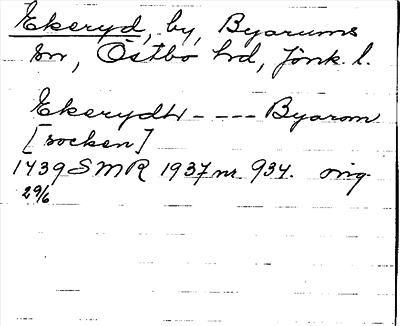 Ekeryd, by, Byarums
sn, Östbo hd, Jönk. l.
Ekerydh - - - - Byarom
[socken]
1439 SMR 1937 nr. 934. orig.
29/6